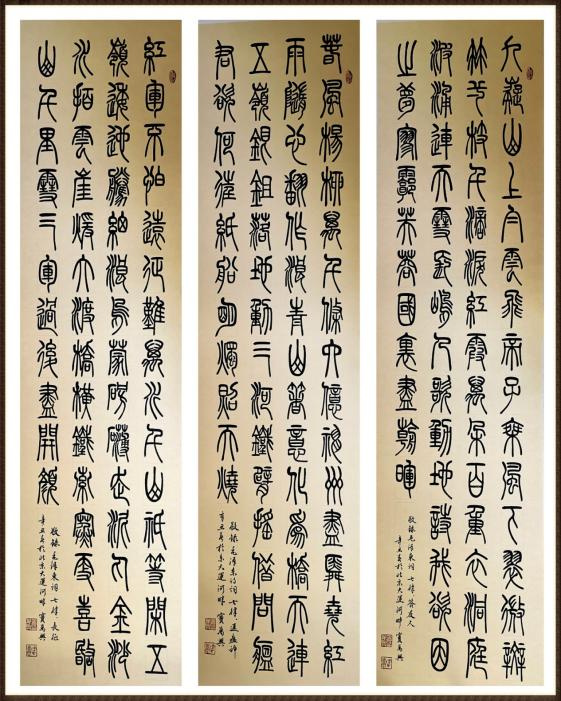 九嶷山上白雲飛帝子乘風下翠微斑
竹一枝千滴淚紅霞萬朵百重衣洞庭
波涌連天雪長島人歌動地詩我欲因
之夢寥廓芙蓉國裏盡朝暉
敬録毛澤東詞七律答友人
辛丑夏於北京大運河畔
春風楊柳萬千條六億神州盡舜堯紅
雨隨心翻作浪青山著意化爲橋天連
五嶺銀鋤落地動三河鐵臂搖借問瘟
君欲何往紙船明燭照天燒
敬録毛澤東詩詞七律送瘟神
辛丑夏於京大運河畔
紅軍不怕遠征難萬水千山祇等閑五
嶺逶迤騰細浪烏蒙磅礴走泥丸金沙
水拍雲崖暖大渡橋橫鐵索寒更喜岷
山千里雪三軍過後盡開顏
敬録毛澤東詞七律長征
辛丑夏於北京大運河畔